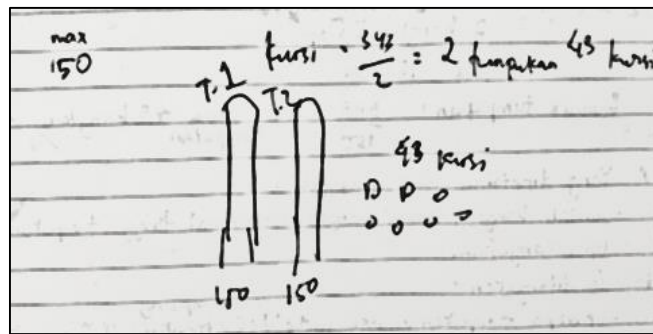 max
150
Kursi = 343/2 = 2 tumpukan 43 kursi
T.1 T.2
43 kursi
150 150